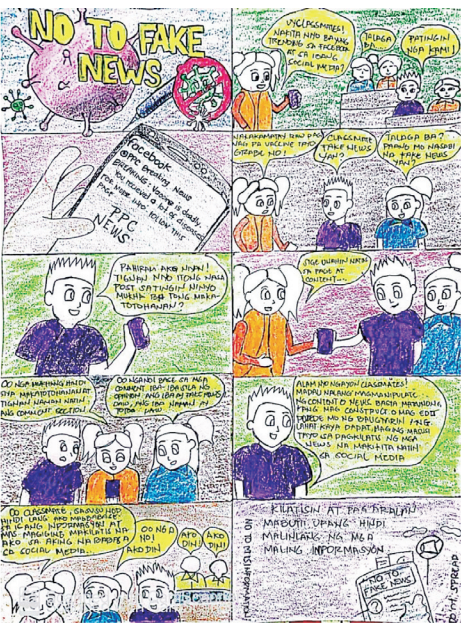 NO TO FAKE
NEWS
UYCLASSMATES!
NAKITA NYO BAYUNG
TRENDING SA FACEBOOK
AT SA IBANG
SOCIAL MEDIA?
TALAGA
BA
PATINGIN
NGA KAMI!
Facebook
@PPC Breaking News
PPC
NEWS
NAKAKAMATAY DAW PAG
NAG PA VACCINE TAYO
GRABE NO!
CLASSMATE
FAKE NEWS
YAN?
TALAGA BA?
PAANO MO NASABI
NA FAKE NEWS
YAN?
PAHIRAM AKO NYAN!
TIGNAN NYO ITONG NAKA
POST SATINGIN NINYO
MUKHA BA TONG MAKA-
TOTOHANAN?
SIGE UNAHIN NATIN
SA PAGE AT
CONTENT...
OO NGA MUKHANG HINDI
SYA MAKATOTOHANAN AT
TIGNAN NAMAN NATIN
ANG COMMENT SECTION
OO NGANO! BASE SA MGA
COMMENT IBA-IBA SILA NG
OPINION ANG IBA AY FAKE NEWS
DAW, ANG IBA NAMAN AY
TOTOO DAW
ALAM NYO NGAYON CLASSMATES!
MADALI NALANG MAGMANIPULATE
NG CONTENT O NEWS BASTA MARUNONG
YANG MAG CONSTRUCT O MAG EDIT
PWEDE MO NG
LAHAT KAYA DAPAT MAGING MAPAN
TAYO SA PAGKILATIS NG MGA
NEWS NA MAKIKITA NATIN
SA SOCIAL MEDIA
OO CLASSMATE, GANUN NGA
HINDI LANG AKO MANINIWALA
SA ISANG INFORMASYON AT
MAS MAGIGING MAKILATIS NA
AKO SA AKING NABABASA
SA SOCIAL MEDIA..
OO NGA
NO!
AKO DIN
AKO
DIN!
AKO
DIN!
KILATISIN AT PAG ARALAN
MABUTI UPANG HINDI
MALINLANG NG MGA
MALING INFORMASYON.
NO TO MISINFORMATION
NO TO
FAKE NEWS